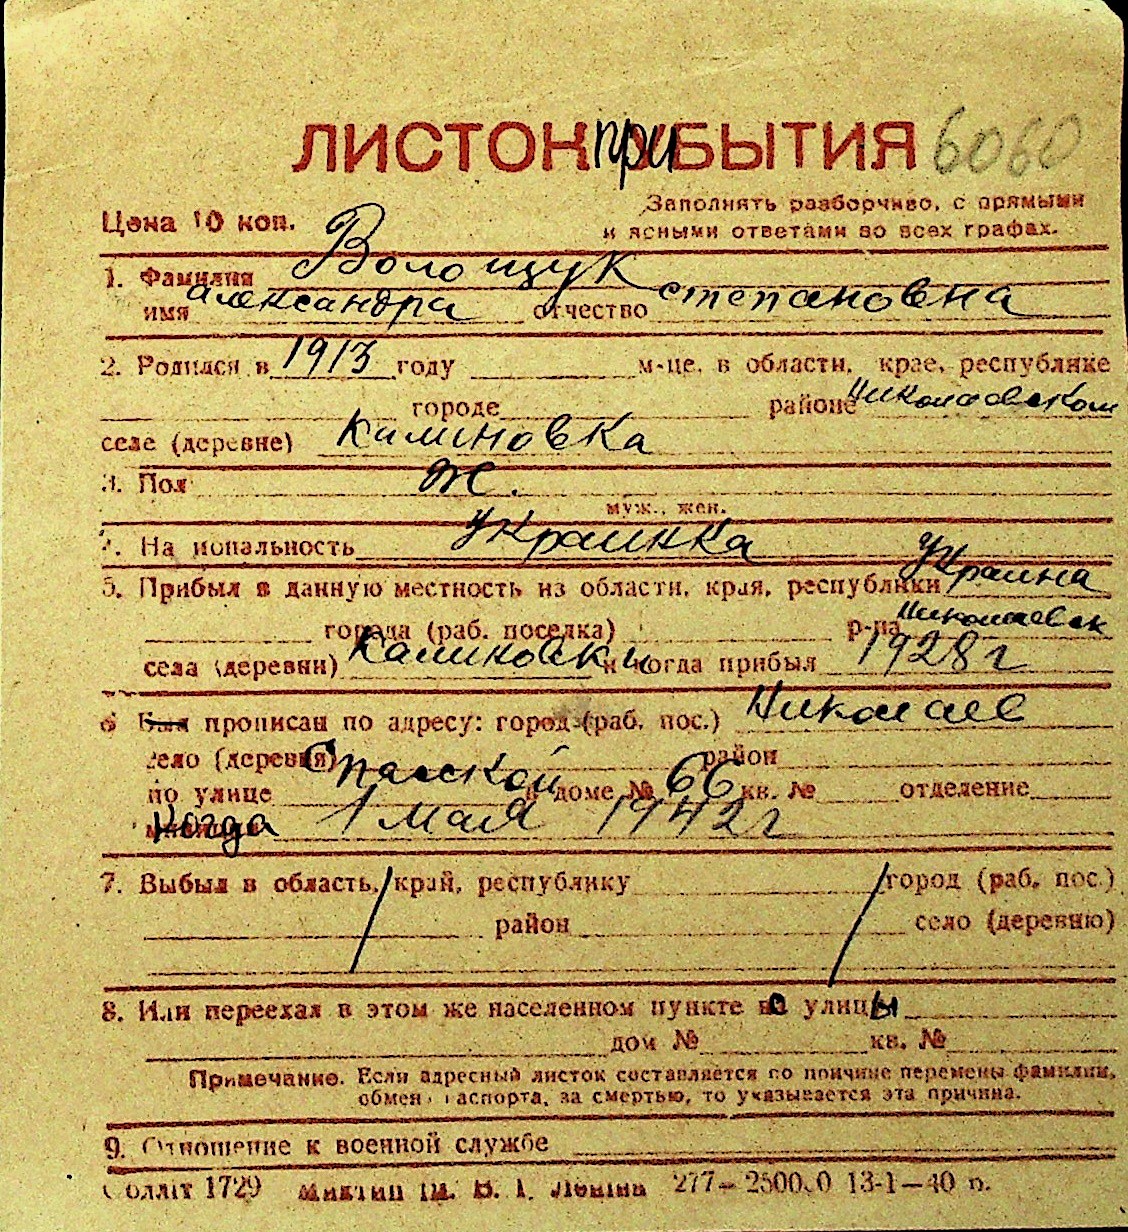 ЛИСТОК прибытия 6060
Цена 10 коп.
Заполнять разборчиво, с прямыми
и ясными ответами во всех графах.
1. Фамилия Волощук
имя Александра отчество степановна
2. Родился в 1913 году м-це, в области, крае, республике
городе районе Николаевском
селе (деревне) Калиновка
3. Пол Ж.
муж., жен.
4. На иональность украинка
5. Прибыл в данную местность из области, края, республики Украина
города (раб. поселка) р-на Николаевск
села (деревни) Калиновки и когда прибыл 1928 г
6 Был прописан по адресу: город (раб. пос.) Николаев
село (деревня) район
по улице Спасской в доме № 66 кв. № отделение
когда 1 мая 1942 г
7. Выбыл в область, край, республику город (раб. пос.)
район село (деревню)
8. Или переехал в этом же населенном пункте на улицы
дом № кв. №
Примечание. Если адресный листок составляется по причине перемены фамилии,
обмен паспорта, за смертью, то указывается эта причина.
9. Отношение к военной службе
Оолліт 1729 ім. В. І. Леніна 277—250000 13-1—40 п.